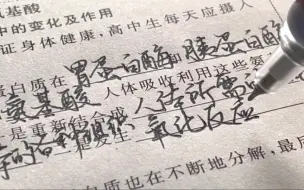 氨基酸
中的变化及作用
证身体健康,高中生每天应摄入
白质在 胃蛋白酶 和 胰蛋白酶
氨基酸 人体吸收利用这些氨
是重新结合成 人体所需
的各种组织 氧化反应
是发生
质也在不断地分解,最后